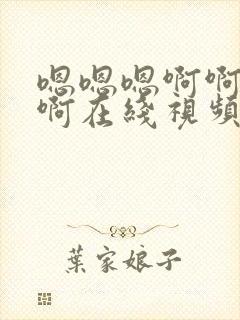 嗯嗯嗯啊啊
啊在綫視頻
葉家娘子